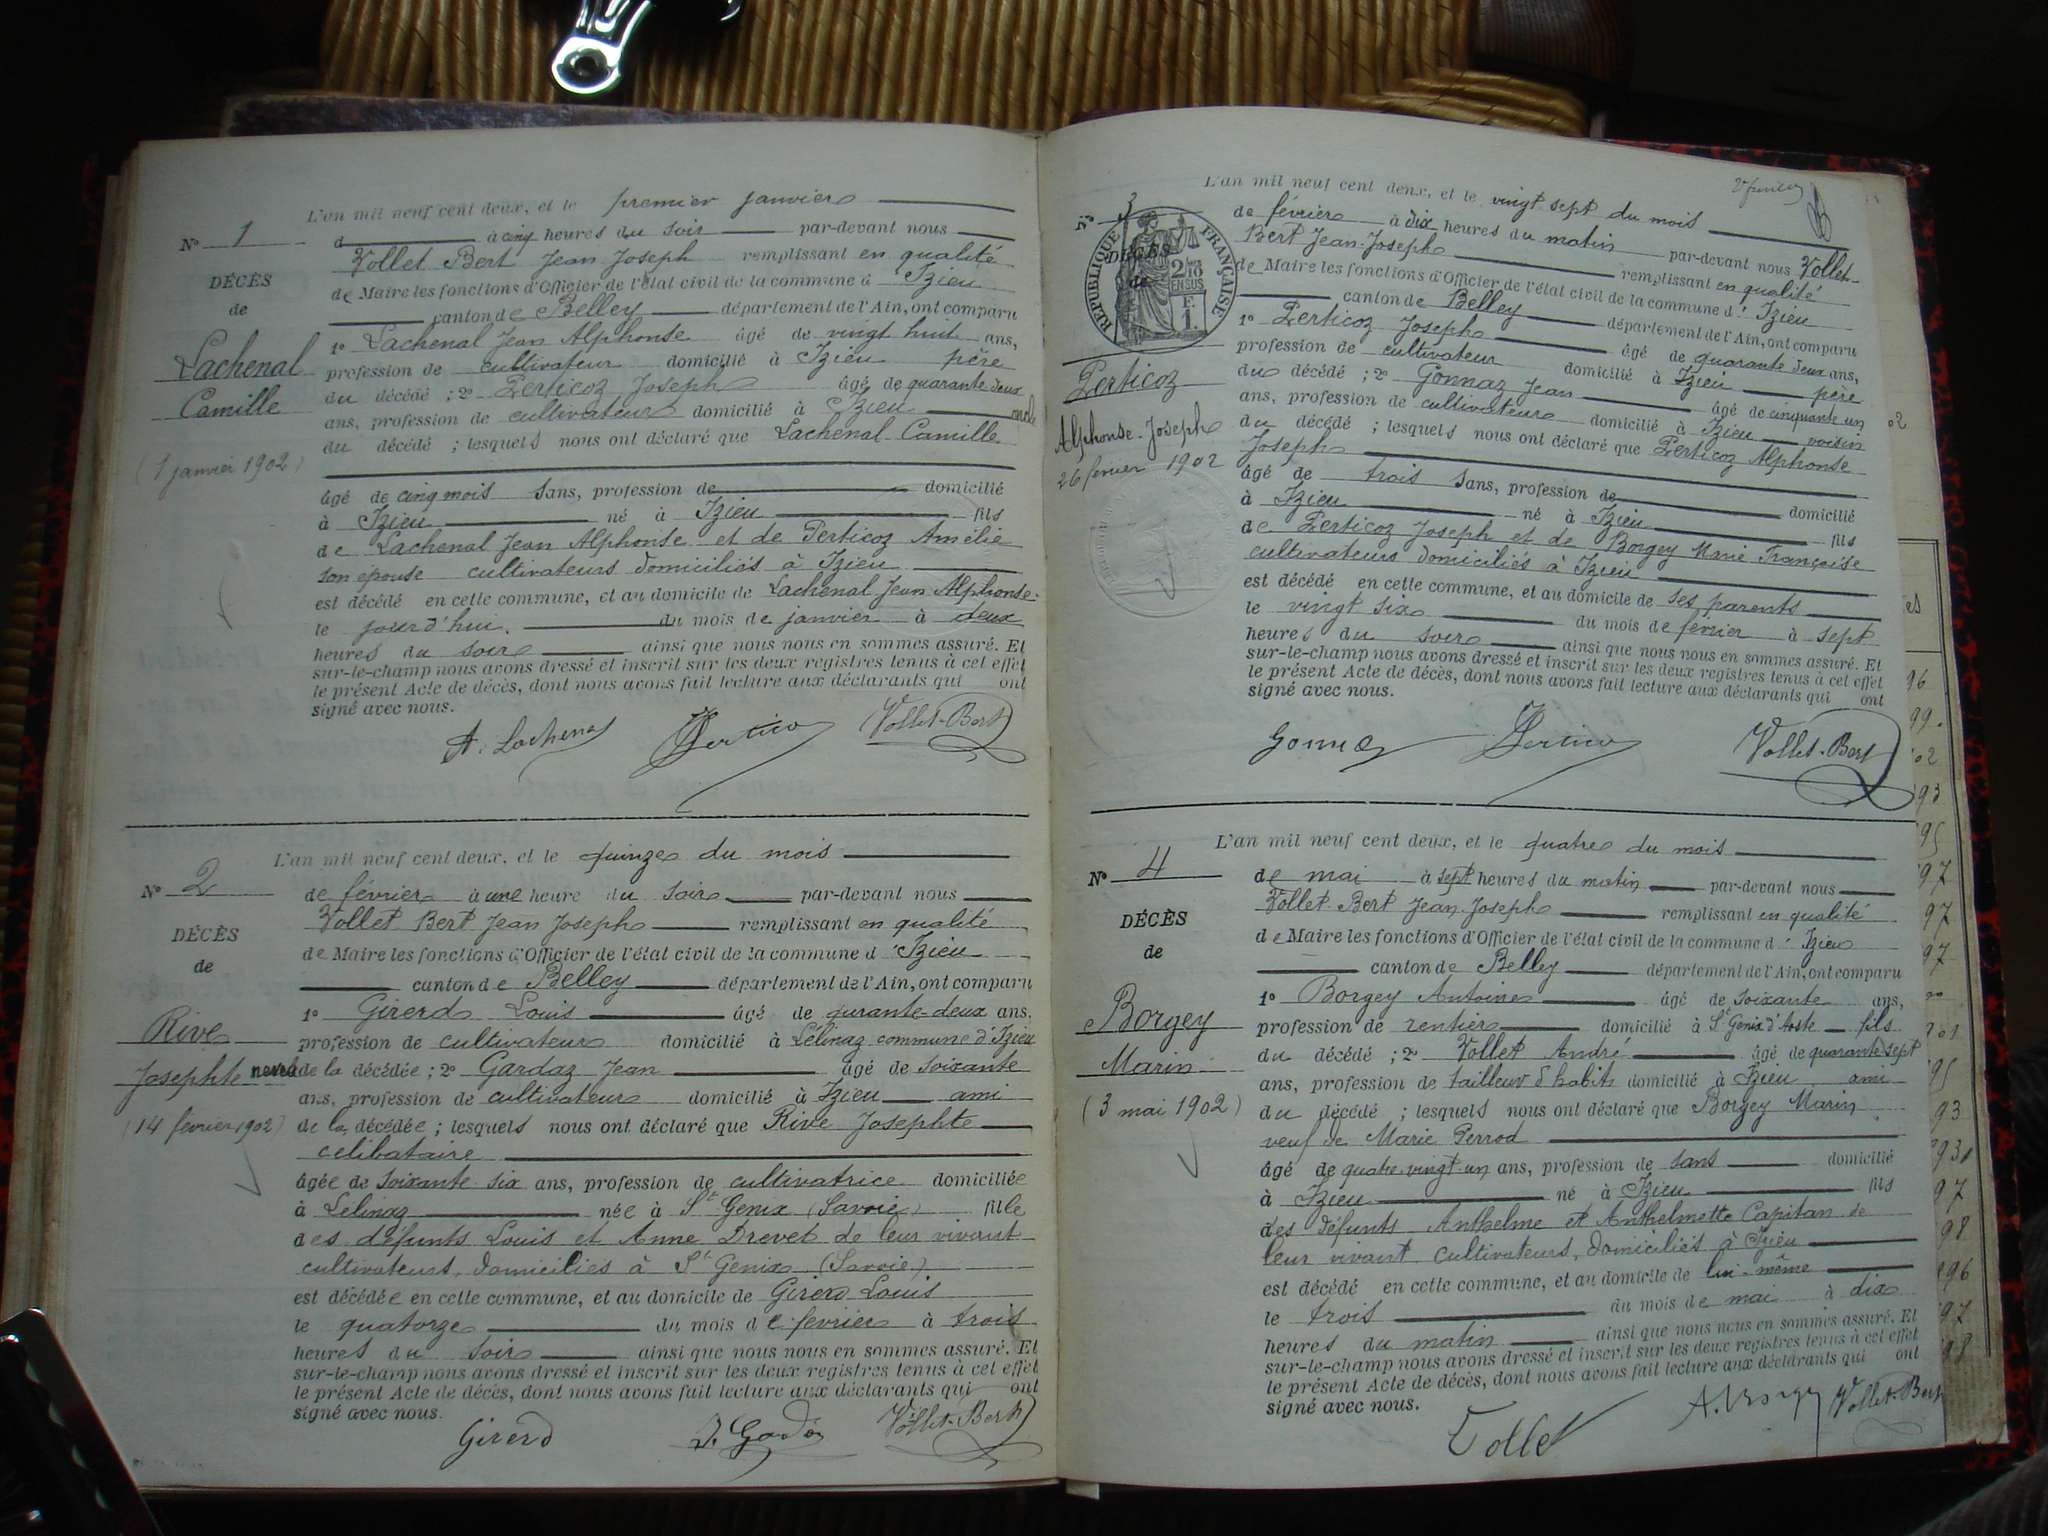 L'an mil neuf cent deux, et le premier janvier
N° 1
d à cinq heures du soir par-devant nous
Vollet Bert Jean Joseph remplissant en qualité
DÉCÈS
de Maire les fonctions d'Officier de l'état civil de la commune d Izieu
de
canton de Belley département de l'Ain, ont comparu
1° Lachenal Jean Alphonse âgé de vingt huit ans,
Lachenal
profession de cultivateur domicilié à Izieu père
du décédé ; 2° Perticoz Joseph âgé de quarante deux
Camille
ans, profession de cultivateur domicilié à Izieu oncle
du décédé ; lesquels nous ont déclaré que Lachenal Camille
(1 janvier 1902)
âgé de cinq mois sans, profession de domicilié
à Izieu né à Izieu fils
de Lachenal Jean Alphonse et de Perticoz Amélie
son épouse cultivateurs domiciliés à Izieu
est décédé en cette commune, et au domicile de Lachenal Jean Alphonse
le jourd'hui. du mois de janvier à deux
heures du soir ainsi que nous nous en sommes assuré. Et
sur-le-champ nous avons dressé et inscrit sur les deux registres tenus à cet effet
le présent Acte de décès, dont nous avons fait lecture aux déclarants qui ont
signé avec nous.
A. Lachenal Vollet-Bert
L'an mil neuf cent deux, et le quinze du mois
N° 2
de février à une heure du soir par-devant nous
Vollet Bert Jean Joseph remplissant en qualité
DÉCÈS
de Maire les fonctions d'Officier de l'état civil de la commune d'Izieu
de
canton de Belley département de l'Ain, ont comparu
1° Girerd Louis âgé de qurante-deux ans,
Rive
profession de cultivateur domicilié à Lélinaz commune d'Izieu
Josephte neveu de la décédée ; 2° Gardaz Jean âgé de soixante
ans, profession de cultivateur domicilié à Izieu ami
(14 février 1902)
de la décédée ; lesquels nous ont déclaré que Rive Josephte
celibataire
âgée de soixante six ans, profession de cultivatrice domiciliée
à Lélinaz née à St Genix (Savoie) fille
des défunts Louis et Anne Drevet de leur vivant
cultivateurs, domiciliés à St Genix (Savoie)
est décédée en cette commune, et au domicile de Girerd Louis
le quatorze du mois de février à trois
heures du soir ainsi que nous nous en sommes assuré. Et
sur-le-champ nous avons dressé et inscrit sur les deux registres tenus à cet effet
le présent Acte de décès, dont nous avons fait lecture aux déclarants qui ont
signé avec nous.
Girerd Vollet-Bert
L'an mil neuf cent deux, et le vingt sept du mois
N° 3
de février à dix heures du matin par-devant nous Vollet-
Bert Jean-Joseph remplissant en qualité
RÉPUBLIQUE FRANÇAISE
DÉCÈS
de
2/10 EN SUS
F. 1.
de Maire les fonctions d'Officier de l'état civil de la commune d'Izieu
canton de Belley département de l'Ain, ont comparu
1° Perticoz Joseph âgé de quarante deux ans,
profession de cultivateur domicilié à Izieu père
Perticoz
du décédé ; 2° Gonnaz Jean âgé de cinquante un
ans, profession de cultivateur domicilié à Izieu voisin
Alphonse-Joseph
du décédé ; lesquels nous ont déclaré que Perticoz Alphonse
26 fevrier 1902
Joseph
âgé de trois sans, profession de domicilié
à Izieu né à Izieu fils
de Perticoz Joseph et de Borgey Marie Françoise
cultivateurs domiciliés à Izieu
est décédé en cette commune, et au domicile de ses parents
le vingt six du mois de février à sept
heures du soir ainsi que nous nous en sommes assuré. Et
sur-le-champ nous avons dressé et inscrit sur les deux registres tenus à cet effet
le présent Acte de décès, dont nous avons fait lecture aux déclarants qui ont
signé avec nous.
Vollet-Bert
L'an mil neuf cent deux, et le quatre du mois
N° 4
de mai à sept heures du matin par-devant nous
Vollet Bert Jean Joseph remplissant en qualité
DÉCÈS
de Maire les fonctions d'Officier de l'état civil de la commune d'Izieu
de
canton de Belley département de l'Ain, ont comparu
1° Borgey Antoine âgé de soixante ans,
Borgey
profession de rentier domicilié à St Genix d'Aoste fils
du décédé ; 2° Vollet André âgé de quarante sept
Marin
ans, profession de tailleur d'habits domicilié à Izieu ami
(3 mai 1902)
du décédé ; lesquels nous ont déclaré que Borgey Marin
veuf de Marie Perrod
âgé de quatre vingt un ans, profession de sans domicilié
à Izieu né à Izieu fils
des défunts Anthelme et Anthelmette Capitan de
leur vivant cultivateurs, domiciliés à Izieu
est décédé en cette commune, et au domicile de lui-même
le trois du mois de mai à dix
heures du matin ainsi que nous nous en sommes assuré. Et
sur-le-champ nous avons dressé et inscrit sur les deux registres tenus à cet effet
le présent Acte de décès, dont nous avons fait lecture aux déclarants qui ont
signé avec nous.
Vollet Vollet-Bert